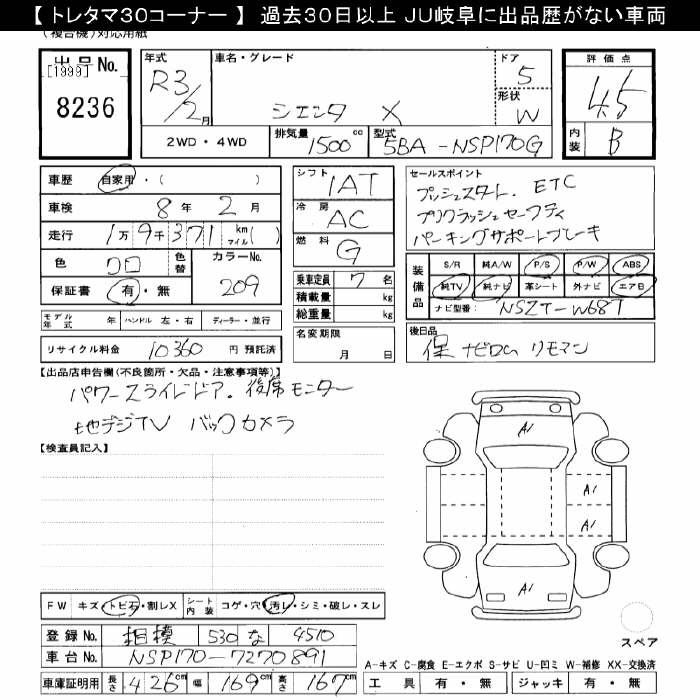 【 トレタマ30コーナー 】 過去30日以上 JU岐阜に出品歴がない車両
(複合機)対応用紙
出品No.
[1999]
8236
年式 R3/2月
車名・グレード シエンタ X
ドア 5
形状 W
2WD・4WD
排気量 1500cc
型式 5BA-NSP170G
評価点 4.5
内装 B
車歴 自家用・( )
車検 8年2月
走行 1万9千371 km マイル( )
色 クロ 色替 カラーNo. 209
保証書 有・無
シフト IAT
冷房 AC
燃料 G
乗車定員 7名
積載量 kg
総重量 kg
名変期限 月 日
セールスポイント
プッシュスタート. ETC
プリクラッシュセーフティ
パーキングサポートブレーキ
装備品 S/R 純A/W P/S P/W ABS
純TV 純ナビ 革シート 外ナビ エアB
ナビ型番: NSZT-W68T
モデル年式 年 ハンドル 左・右 ディーラー・並行
リサイクル料金 10360 円 預託済
後日品
保 ナビROM リモコン
【出品店申告欄(不良箇所・欠品・注意事項等)】
パワースライドドア. 後席モニター
地デジTV バックカメラ
【検査員記入】
A1
A1
A1
A1
FW キズ・トビ石・割レX シート内装 コゲ・穴・汚レ・シミ・破レ・スレ
登録No. 相模 530 な 4510
車台No. NSP170-7270891
車庫証明用 長さ 426cm 幅 169cm 高さ 167cm
スペア
A-キズ C-腐食 E-エクボ S-サビ U-凹ミ W-補修 XX-交換済
工具 有・無 ジャッキ 有・無